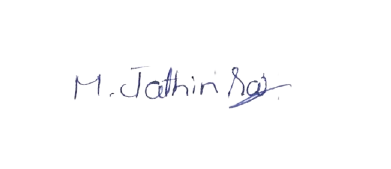 M. Jathin Sai